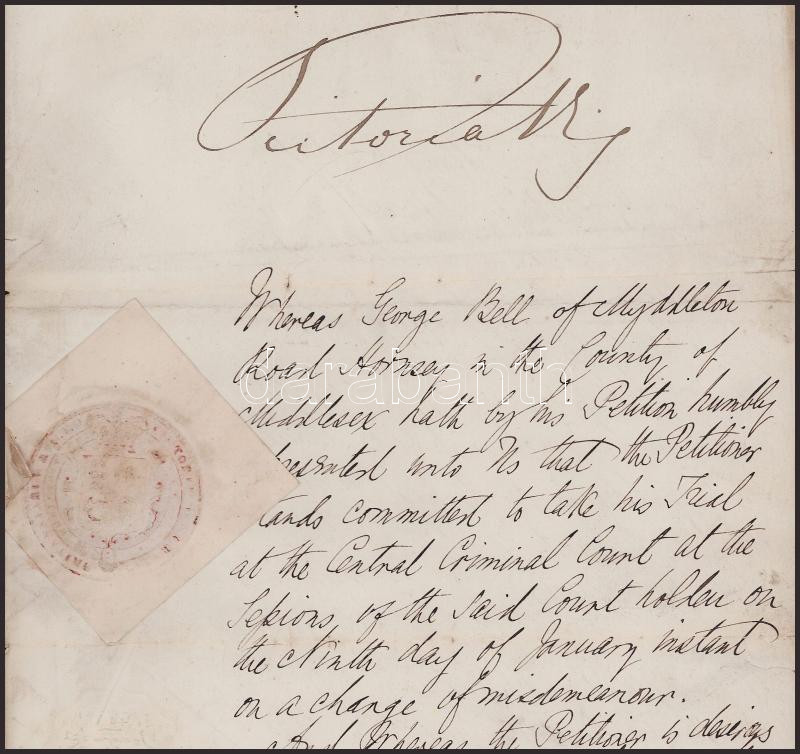 Victoria R
Whereas George Bell of Myddleton
Road Hornsey in the County of
Middlesex hath by his Petition humbly
presented unto Us that the Petitioner
tands committed to take his Trial
at the Central Criminal Court at the
Sessions of the said Court holden on
the Ninth day of January instant
on a charge of misdemeanour.
And Whereas the Petitioner is desirous
darabanth